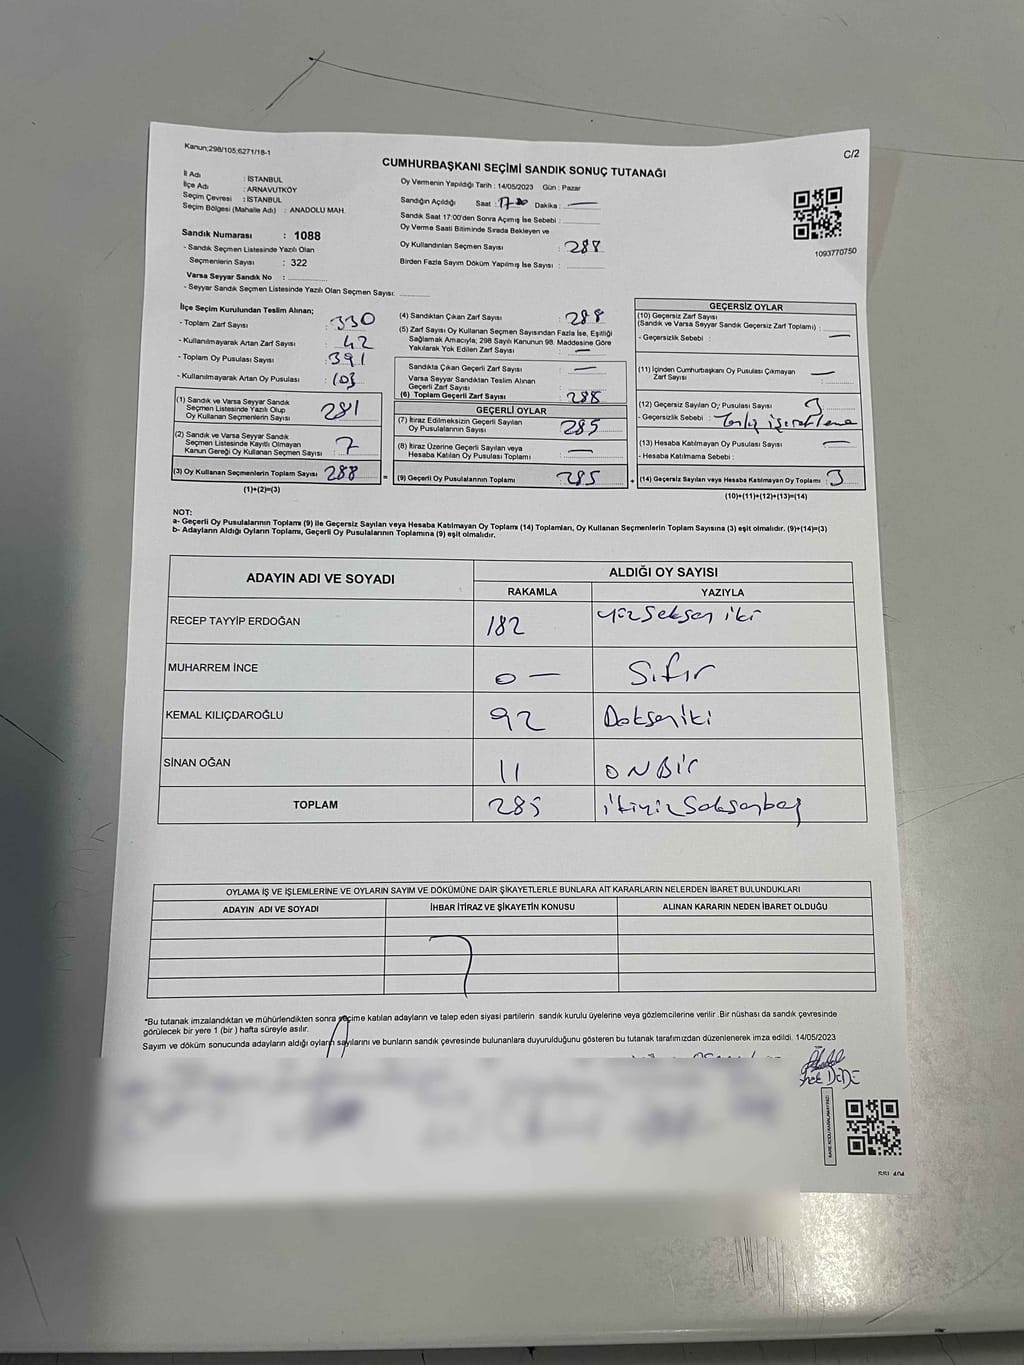 Kanun;298/105;6271/18-1
C/2
CUMHURBAŞKANI SEÇİMİ SANDIK SONUÇ TUTANAĞI
İl Adı : İSTANBUL
İlçe Adı : ARNAVUTKÖY
Seçim Çevresi : İSTANBUL
Seçim Bölgesi (Mahalle Adı) : ANADOLU MAH.
Sandık Numarası : 1088
- Sandık Seçmen Listesinde Yazılı Olan
Seçmenlerin Sayısı : 322
Varsa Seyyar Sandık No :
- Seyyar Sandık Seçmen Listesinde Yazılı Olan Seçmen Sayısı:
Oy Vermenin Yapıldığı Tarih : 14/05/2023 Gün : Pazar
Sandığın Açıldığı Saat : 17-00 Dakika : —
Sandık Saat 17:00'den Sonra Açımış İse Sebebi :
Oy Verme Saati Bitiminde Sırada Bekleyen ve
Oy Kullandırılan Seçmen Sayısı : 288
Birden Fazla Sayım Döküm Yapılmış İse Sayısı :
1093770750
İlçe Seçim Kurulundan Teslim Alınan;
- Toplam Zarf Sayısı : 330
- Kullanılmayarak Artan Zarf Sayısı : 42
- Toplam Oy Pusulası Sayısı : 391
- Kullanılmayarak Artan Oy Pusulası : 103
(1) Sandık ve Varsa Seyyar Sandık
Seçmen Listesinde Yazılı Olup
Oy Kullanan Seçmenlerin Sayısı 281
(2) Sandık ve Varsa Seyyar Sandık
Seçmen Listesinde Kayıtlı Olmayan
Kanun Gereği Oy Kullanan Seçmen Sayısı : 7
(3) Oy Kullanan Seçmenlerin Toplam Sayısı 288
(1)+(2)=(3)
(4) Sandıktan Çıkan Zarf Sayısı : 288
(5) Zarf Sayısı Oy Kullanan Seçmen Sayısından Fazla İse, Eşitliği
Sağlamak Amacıyla; 298 Sayılı Kanunun 98. Maddesine Göre
Yakılarak Yok Edilen Zarf Sayısı : —
Sandıkta Çıkan Geçerli Zarf Sayısı : —
Varsa Seyyar Sandıktan Teslim Alınan
Geçerli Zarf Sayısı :
(6) Toplam Geçerli Zarf Sayısı : 288
GEÇERLİ OYLAR
(7) İtiraz Edilmeksizin Geçerli Sayılan
Oy Pusulalarının Sayısı : 285
(8) İtiraz Üzerine Geçerli Sayılan veya
Hesaba Katılan Oy Pusulası Toplamı : —
= (9) Geçerli Oy Pusulalarının Toplamı : 285
GEÇERSİZ OYLAR
(10) Geçersiz Zarf Sayısı
(Sandık ve Varsa Seyyar Sandık Geçersiz Zarf Toplamı) :
- Geçersizlik Sebebi : —
(11) İçinden Cumhurbaşkanı Oy Pusulası Çıkmayan
Zarf Sayısı : —
(12) Geçersiz Sayılan Oy Pusulası Sayısı : 3
- Geçersizlik Sebebi :
(13) Hesaba Katılmayan Oy Pusulası Sayısı : —
- Hesaba Katılmama Sebebi :
+ (14) Geçersiz Sayılan veya Hesaba Katılmayan Oy Toplamı : 3
(10)+(11)+(12)+(13)=(14)
NOT:
a- Geçerli Oy Pusulalarının Toplamı (9) ile Geçersiz Sayılan veya Hesaba Katılmayan Oy Toplamı (14) Toplamları, Oy Kullanan Seçmenlerin Toplam Sayısına (3) eşit olmalıdır. (9)+(14)=(3)
b- Adayların Aldığı Oyların Toplamı, Geçerli Oy Pusulalarının Toplamına (9) eşit olmalıdır.
ADAYIN ADI VE SOYADI
ALDIĞI OY SAYISI
RAKAMLA YAZIYLA
RECEP TAYYİP ERDOĞAN 182 yüzseksen iki
MUHARREM İNCE 0 — Sıfır
KEMAL KILIÇDAROĞLU 92 Doksaniki
SİNAN OĞAN 11 ONBİR
TOPLAM 285 ikiyüzseksenbeş
OYLAMA İŞ VE İŞLEMLERİNE VE OYLARIN SAYIM VE DÖKÜMÜNE DAİR ŞİKAYETLERLE BUNLARA AİT KARARLARIN NELERDEN İBARET BULUNDUKLARI
ADAYIN ADI VE SOYADI İHBAR İTİRAZ VE ŞİKAYETİN KONUSU ALINAN KARARIN NEDEN İBARET OLDUĞU
*Bu tutanak imzalandıktan ve mühürlendikten sonra seçime katılan adayların ve talep eden siyasi partilerin sandık kurulu üyelerine veya gözlemcilerine verilir .Bir nüshası da sandık çevresinde
görülecek bir yere 1 (bir ) hafta süreyle asılır.
Sayım ve döküm sonucunda adayların aldığı oyların sayılarını ve bunların sandık çevresinde bulunanlara duyurulduğunu gösteren bu tutanak tarafımızdan düzenlenerek imza edildi. 14/05/2023